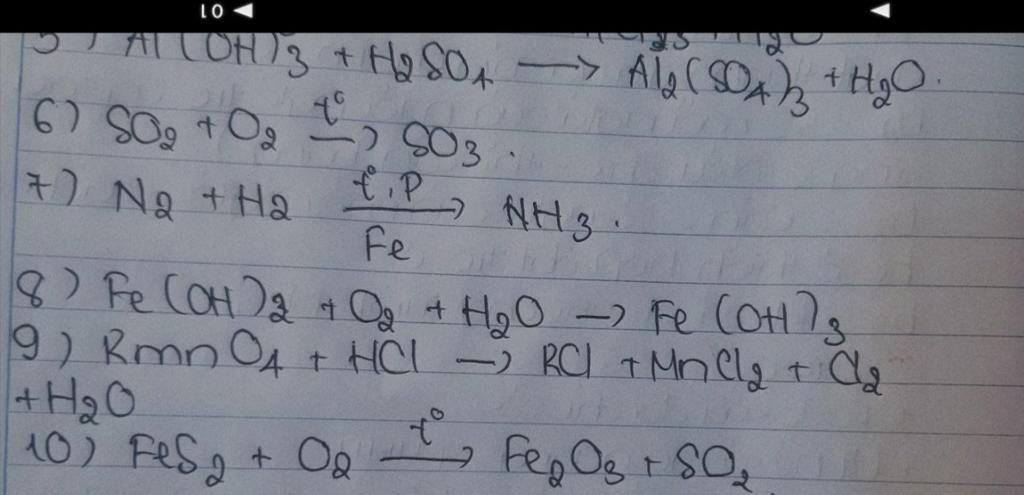 01
5) Al(OH)3 + H2SO4 → Al2(SO4)3 + H2O.
6) SO2 + O2 t° → SO3.
7) N2 + H2 t°, P → Fe NH3.
8) Fe(OH)2 + O2 + H2O → Fe(OH)3
9) RmnO4 + HCl → RCl + MnCl2 + Cl2
+ H2O
10) FeS2 + O2 t° → Fe2O3 + SO2